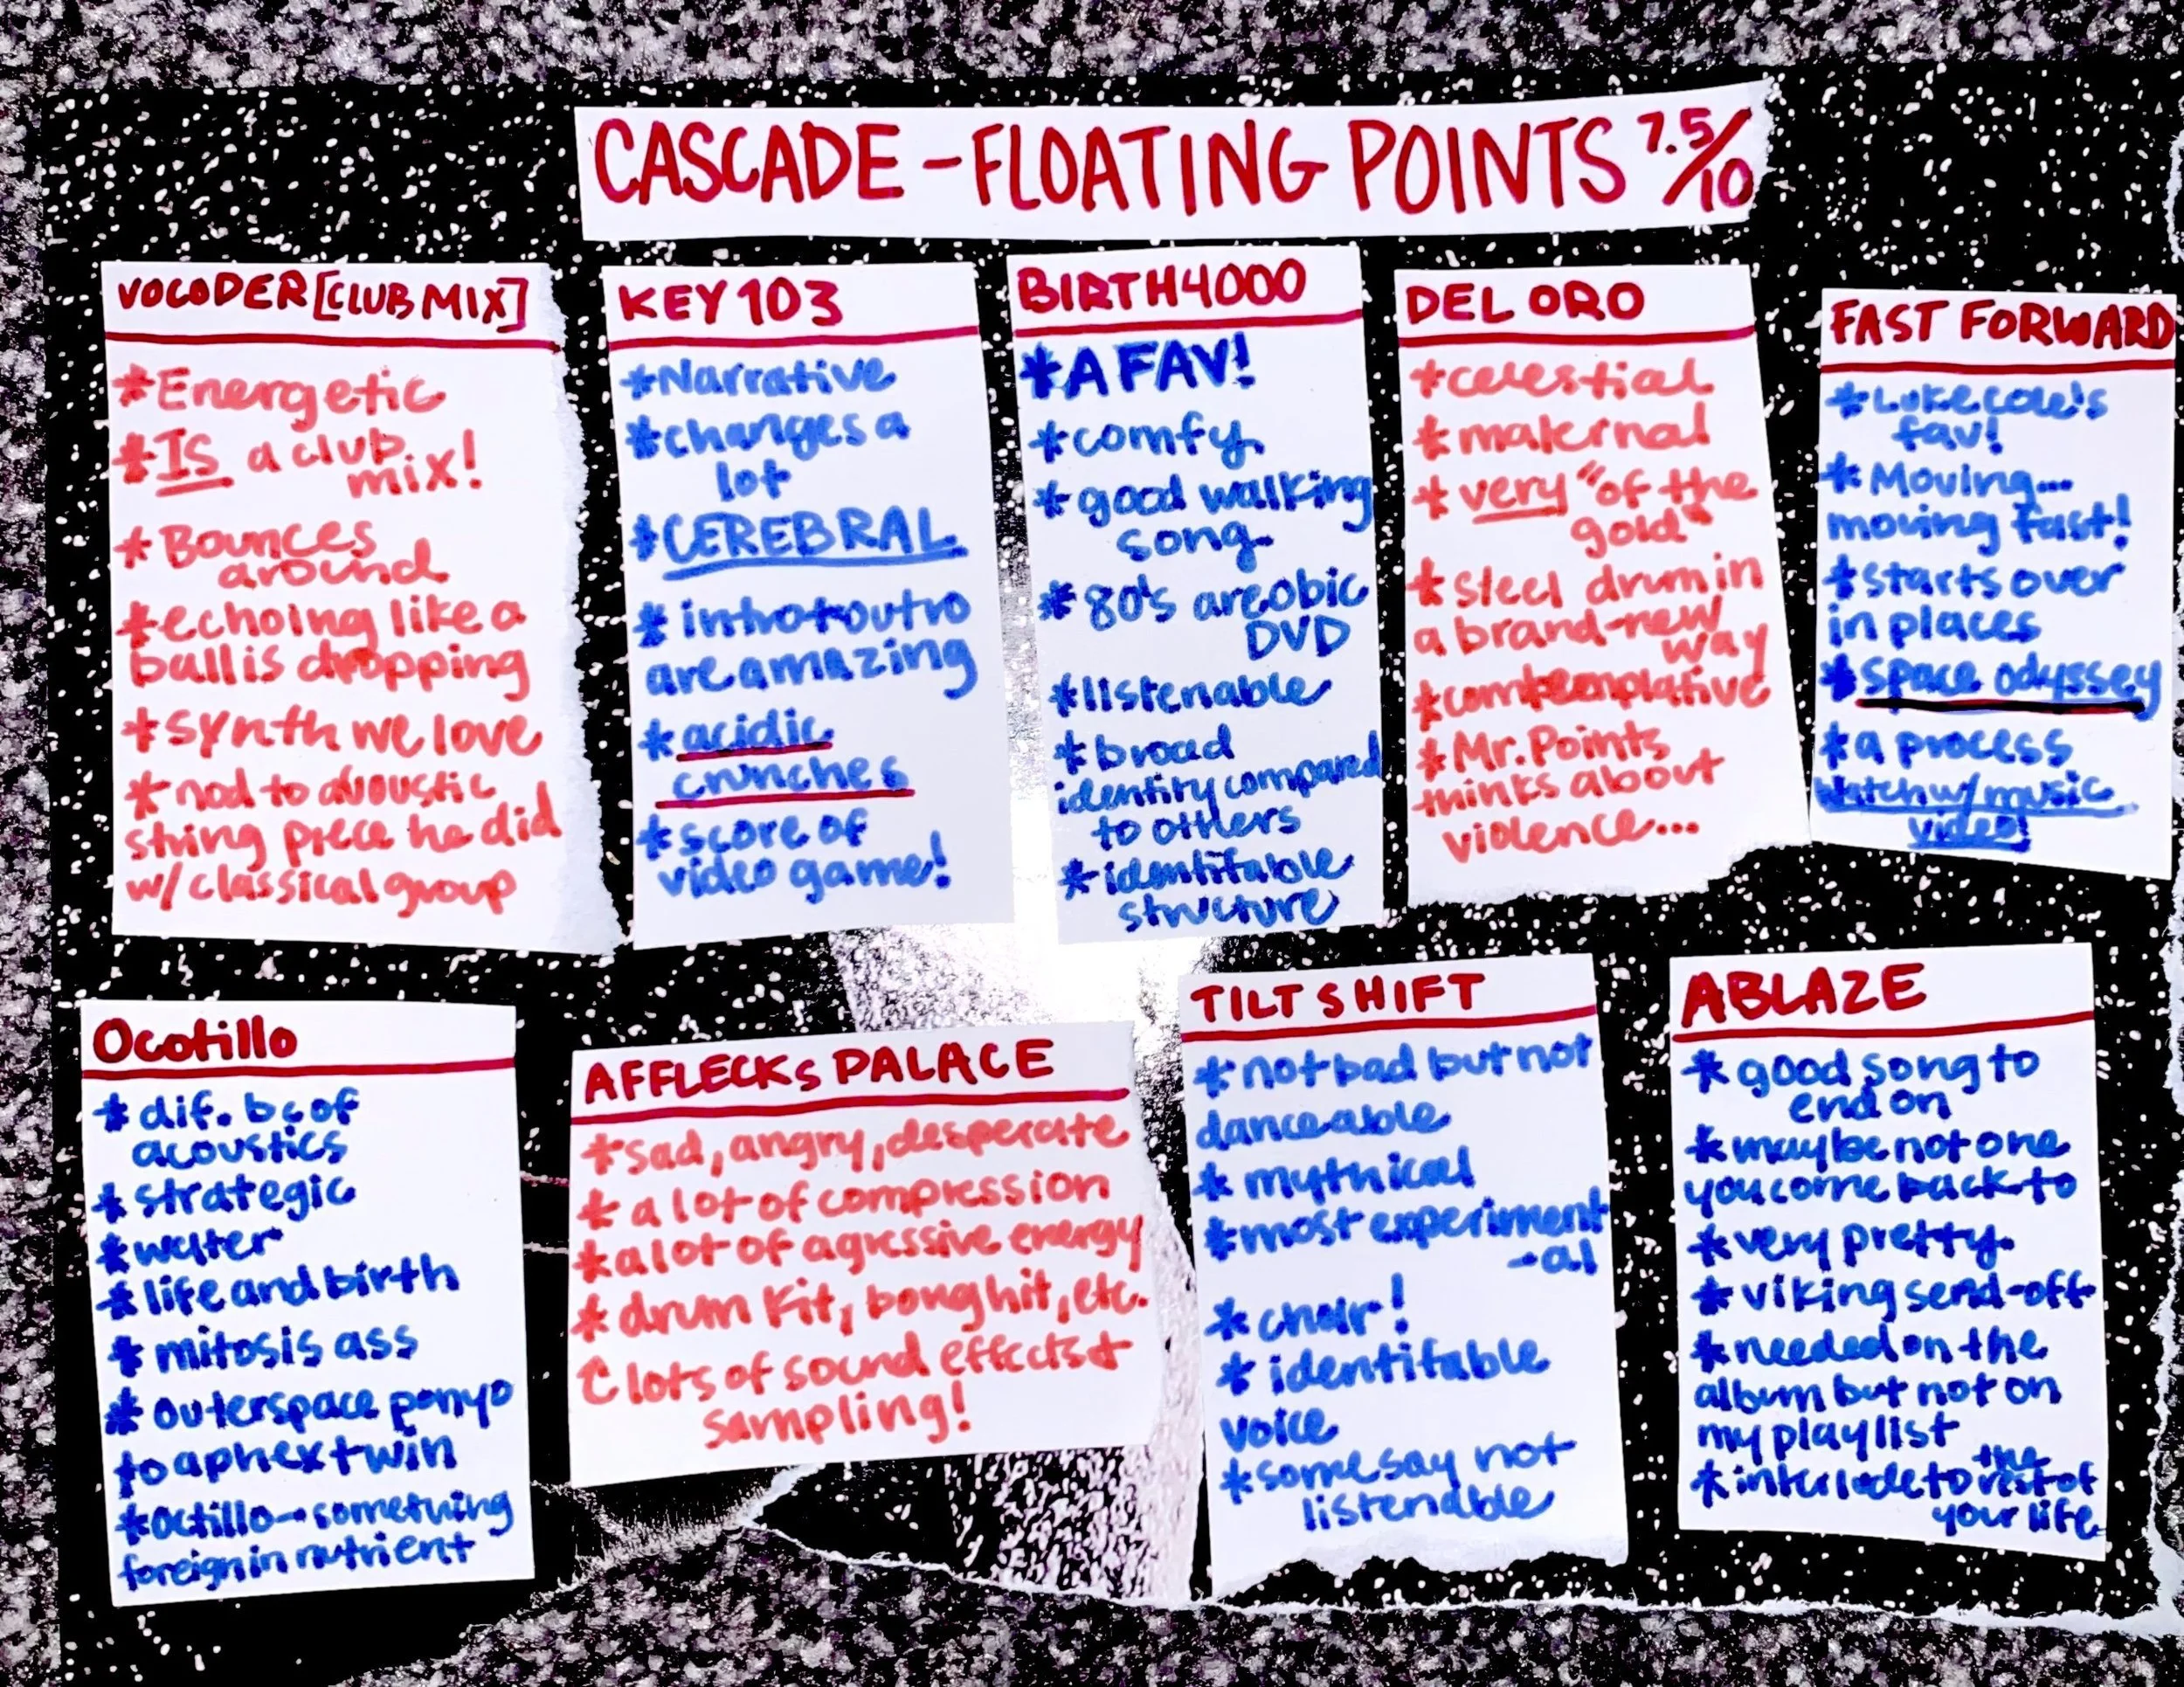 CASCADE - FLOATING POINTS 7.5/10
VOCODER [CLUB MIX]
*Energetic
*IS a club
mix!
*Bounces
around
*echoing like a
ball is dropping
*synth we love
*nod to acoustic
string piece he did
w/ classical group
KEY 103
*Narrative
*changes a
lot
*CEREBRAL
*intro + outro
are amazing
*acidic
crunches
*score of
video game!
BIRTH4000
*A FAV!
*comfy
*good walking
song
*80's areobic
DVD
*listenable
*broad
identity compared
to others
*identifable
structure
DEL ORO
*celestial
*maternal
*very "of the
gold"
*steel drum in
a brand-new
way
*comtemplative
*Mr. Points
thinks about
violence...
FAST FORWARD
*Luke cole's
fav!
*Moving...
moving fast!
*starts over
in places
*space odyssey
*a process
Watch w/ music
video!
Ocotillo
*dif. bc of
acoustics
*strategic
*water
*life and birth
*mitosis ass
*outerspace ponyo
to aphex twin
*Octillo→something
foreign in nutrient
AFFLECKS PALACE
*sad, angry, desperate
*a lot of compression
*a lot of agressive energy
*drum kit, bong hit, etc.
lots of sound effects +
sampling!
TILT SHIFT
*not bad but not
danceable
*mythical
*most experiment
-al
*choir!
*identifable
voice
*some say not
listenable
ABLAZE
*good song to
end on
*maybe not one
you come back to
*very pretty
*viking send-off
*needed on the
album but not on
my playlist
*interlude to the rest of
your life